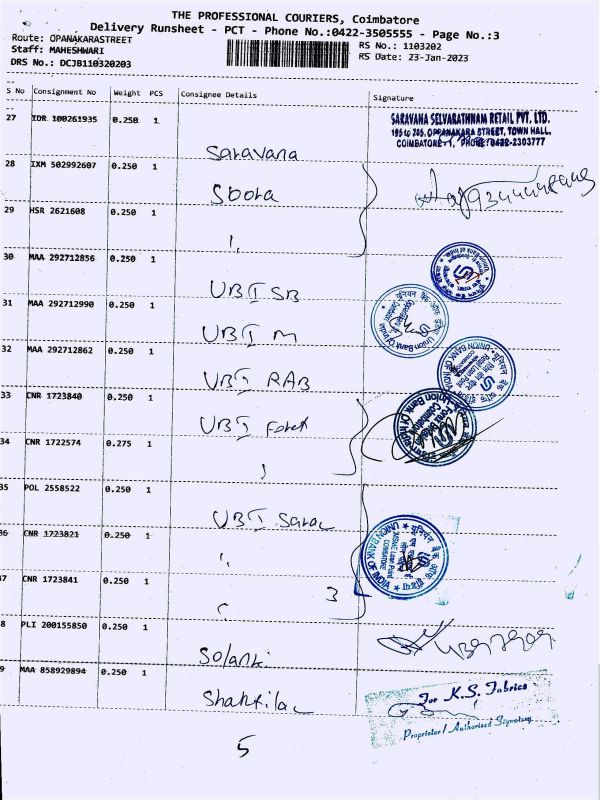 THE PROFESSIONAL COURIERS, Coimbatore
Delivery Runsheet - PCT - Phone No.:0422-3505555 - Page No.:3
Route: OPANAKARASTREET
Staff: MAHESHWARI
DRS No.: DCJB110320203
RS No.: 1103202
RS Date: 23-Jan-2023
S No Consignment No Weight PCS Consignee Details Signature
27 IDR 100261935 0.250 1 Saravana
SARAVANA SELVARATHNAM RETAIL PVT. LTD.
195 to 205, OPPANAKARA STREET, TOWN HALL,
COIMBATORE - 1, PHONE: 0422-2303777
28 IXM 502992607 0.250 1 Sbora
29 HSR 2621608 0.250 1
30 MAA 292712856 0.250 1 UBI SB
31 MAA 292712990 0.250 1 UBI M
Union Bank Of India
32 MAA 292712862 0.250 1 UBI RAB
UNION BANK OF INDIA
33 CNR 1723840 0.250 1 UBI
Union Bank Of India
34 CNR 1722574 0.275 1
35 POL 2558522 0.250 1 UBI
36 CNR 1723821 0.250 1
UNION BANK OF INDIA
37 CNR 1723841 0.250 1 3
8 PLI 200155850 0.250 1 Solanki
9 MAA 858929894 0.250 1
For K.S. Fabrics
Proprietor / Authorised Signatory
5